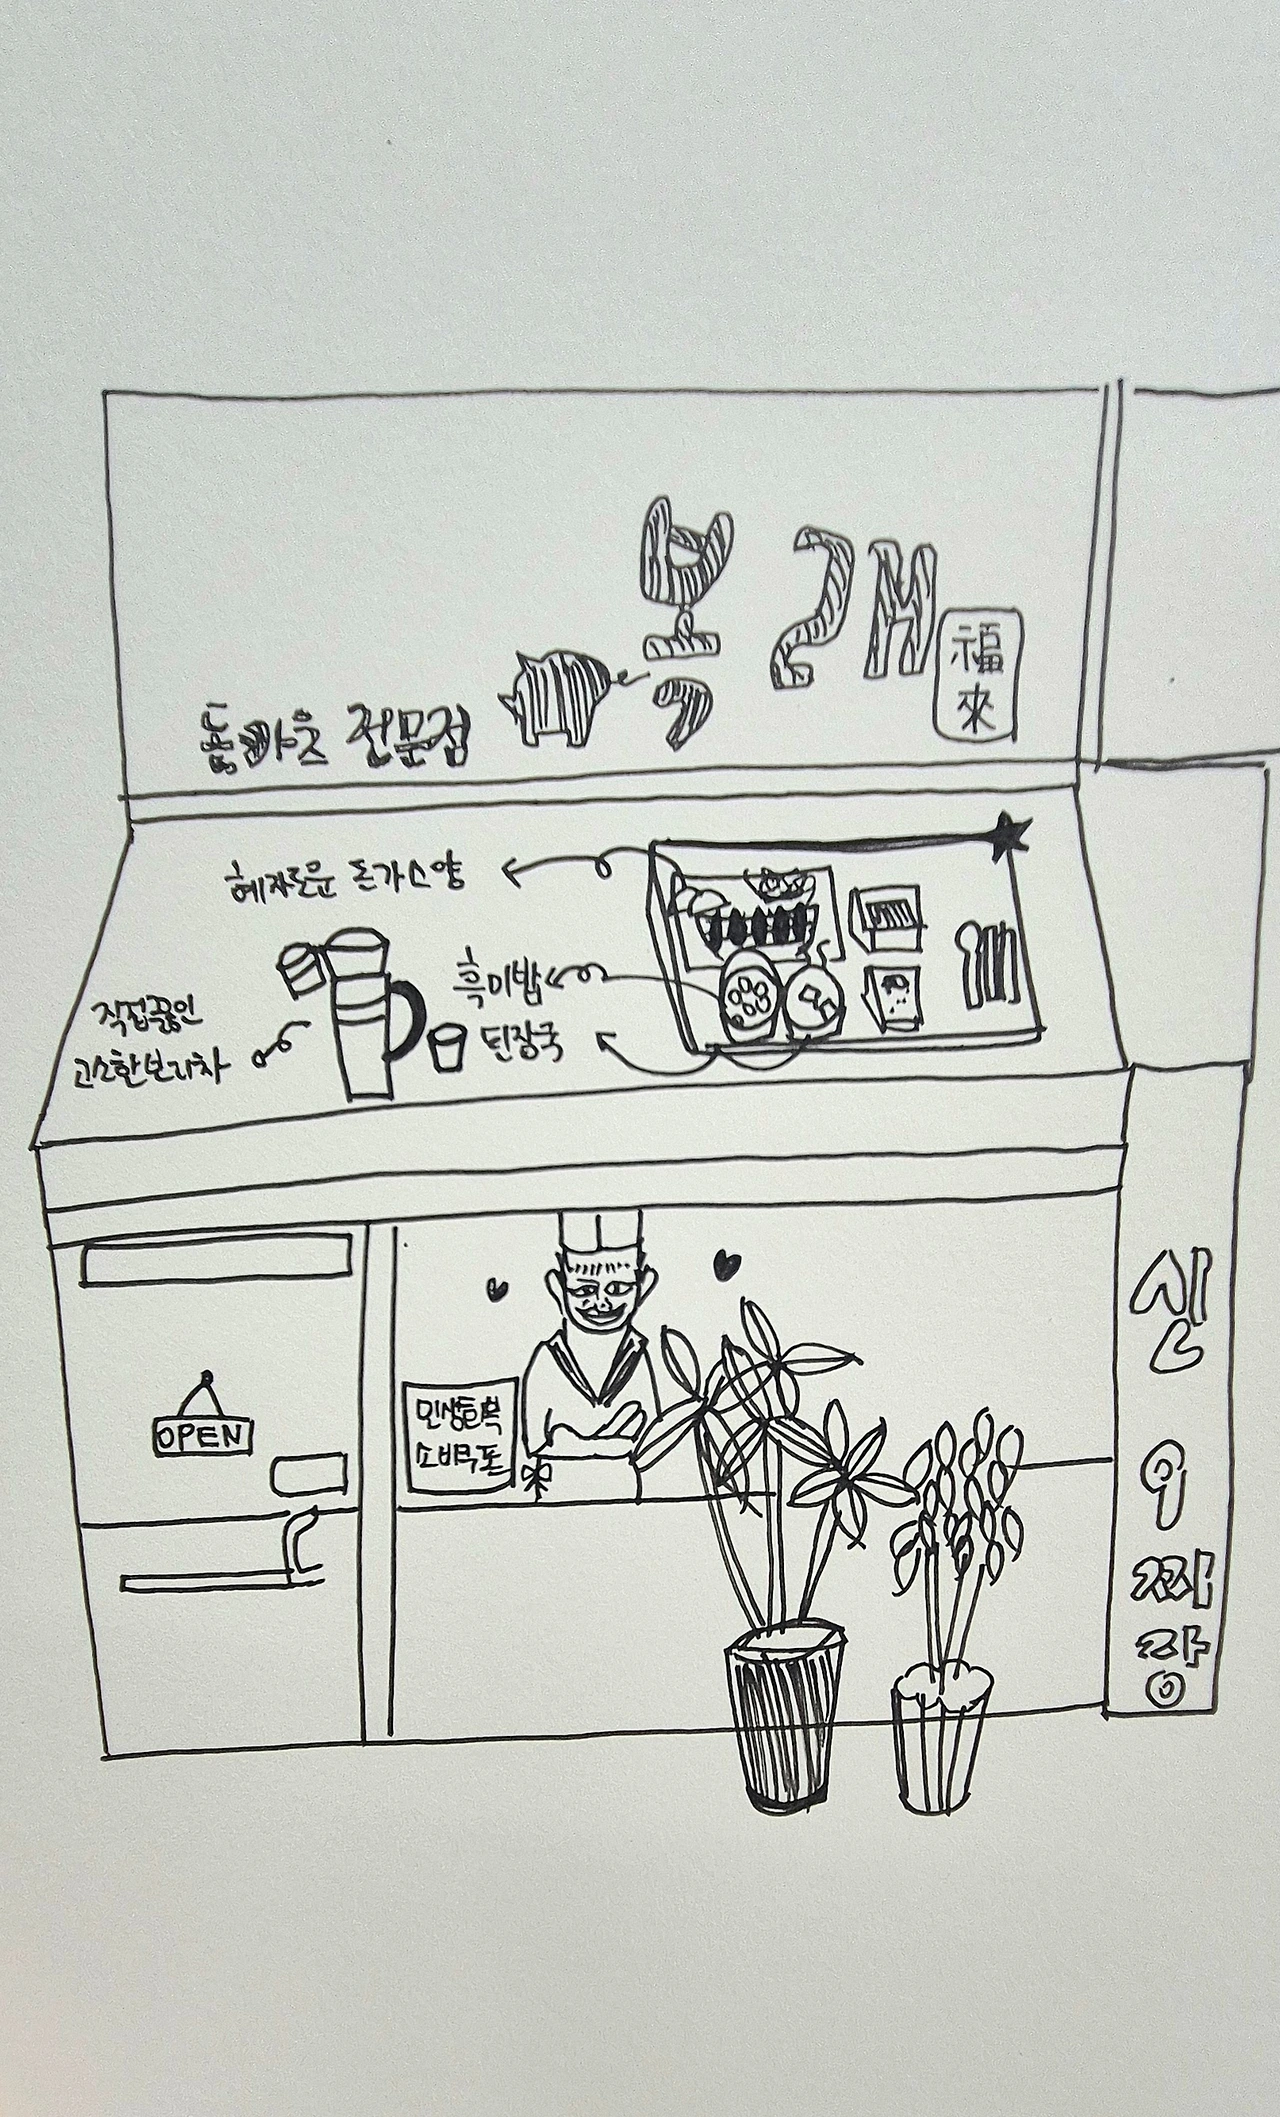 복
2M
福
來
돈까스 전문점
혜자로운 돈가스양
흑미밥
된장국
직접끓인
고소한보리차
OPEN
민생회복
소비쿠폰
신
짜
장